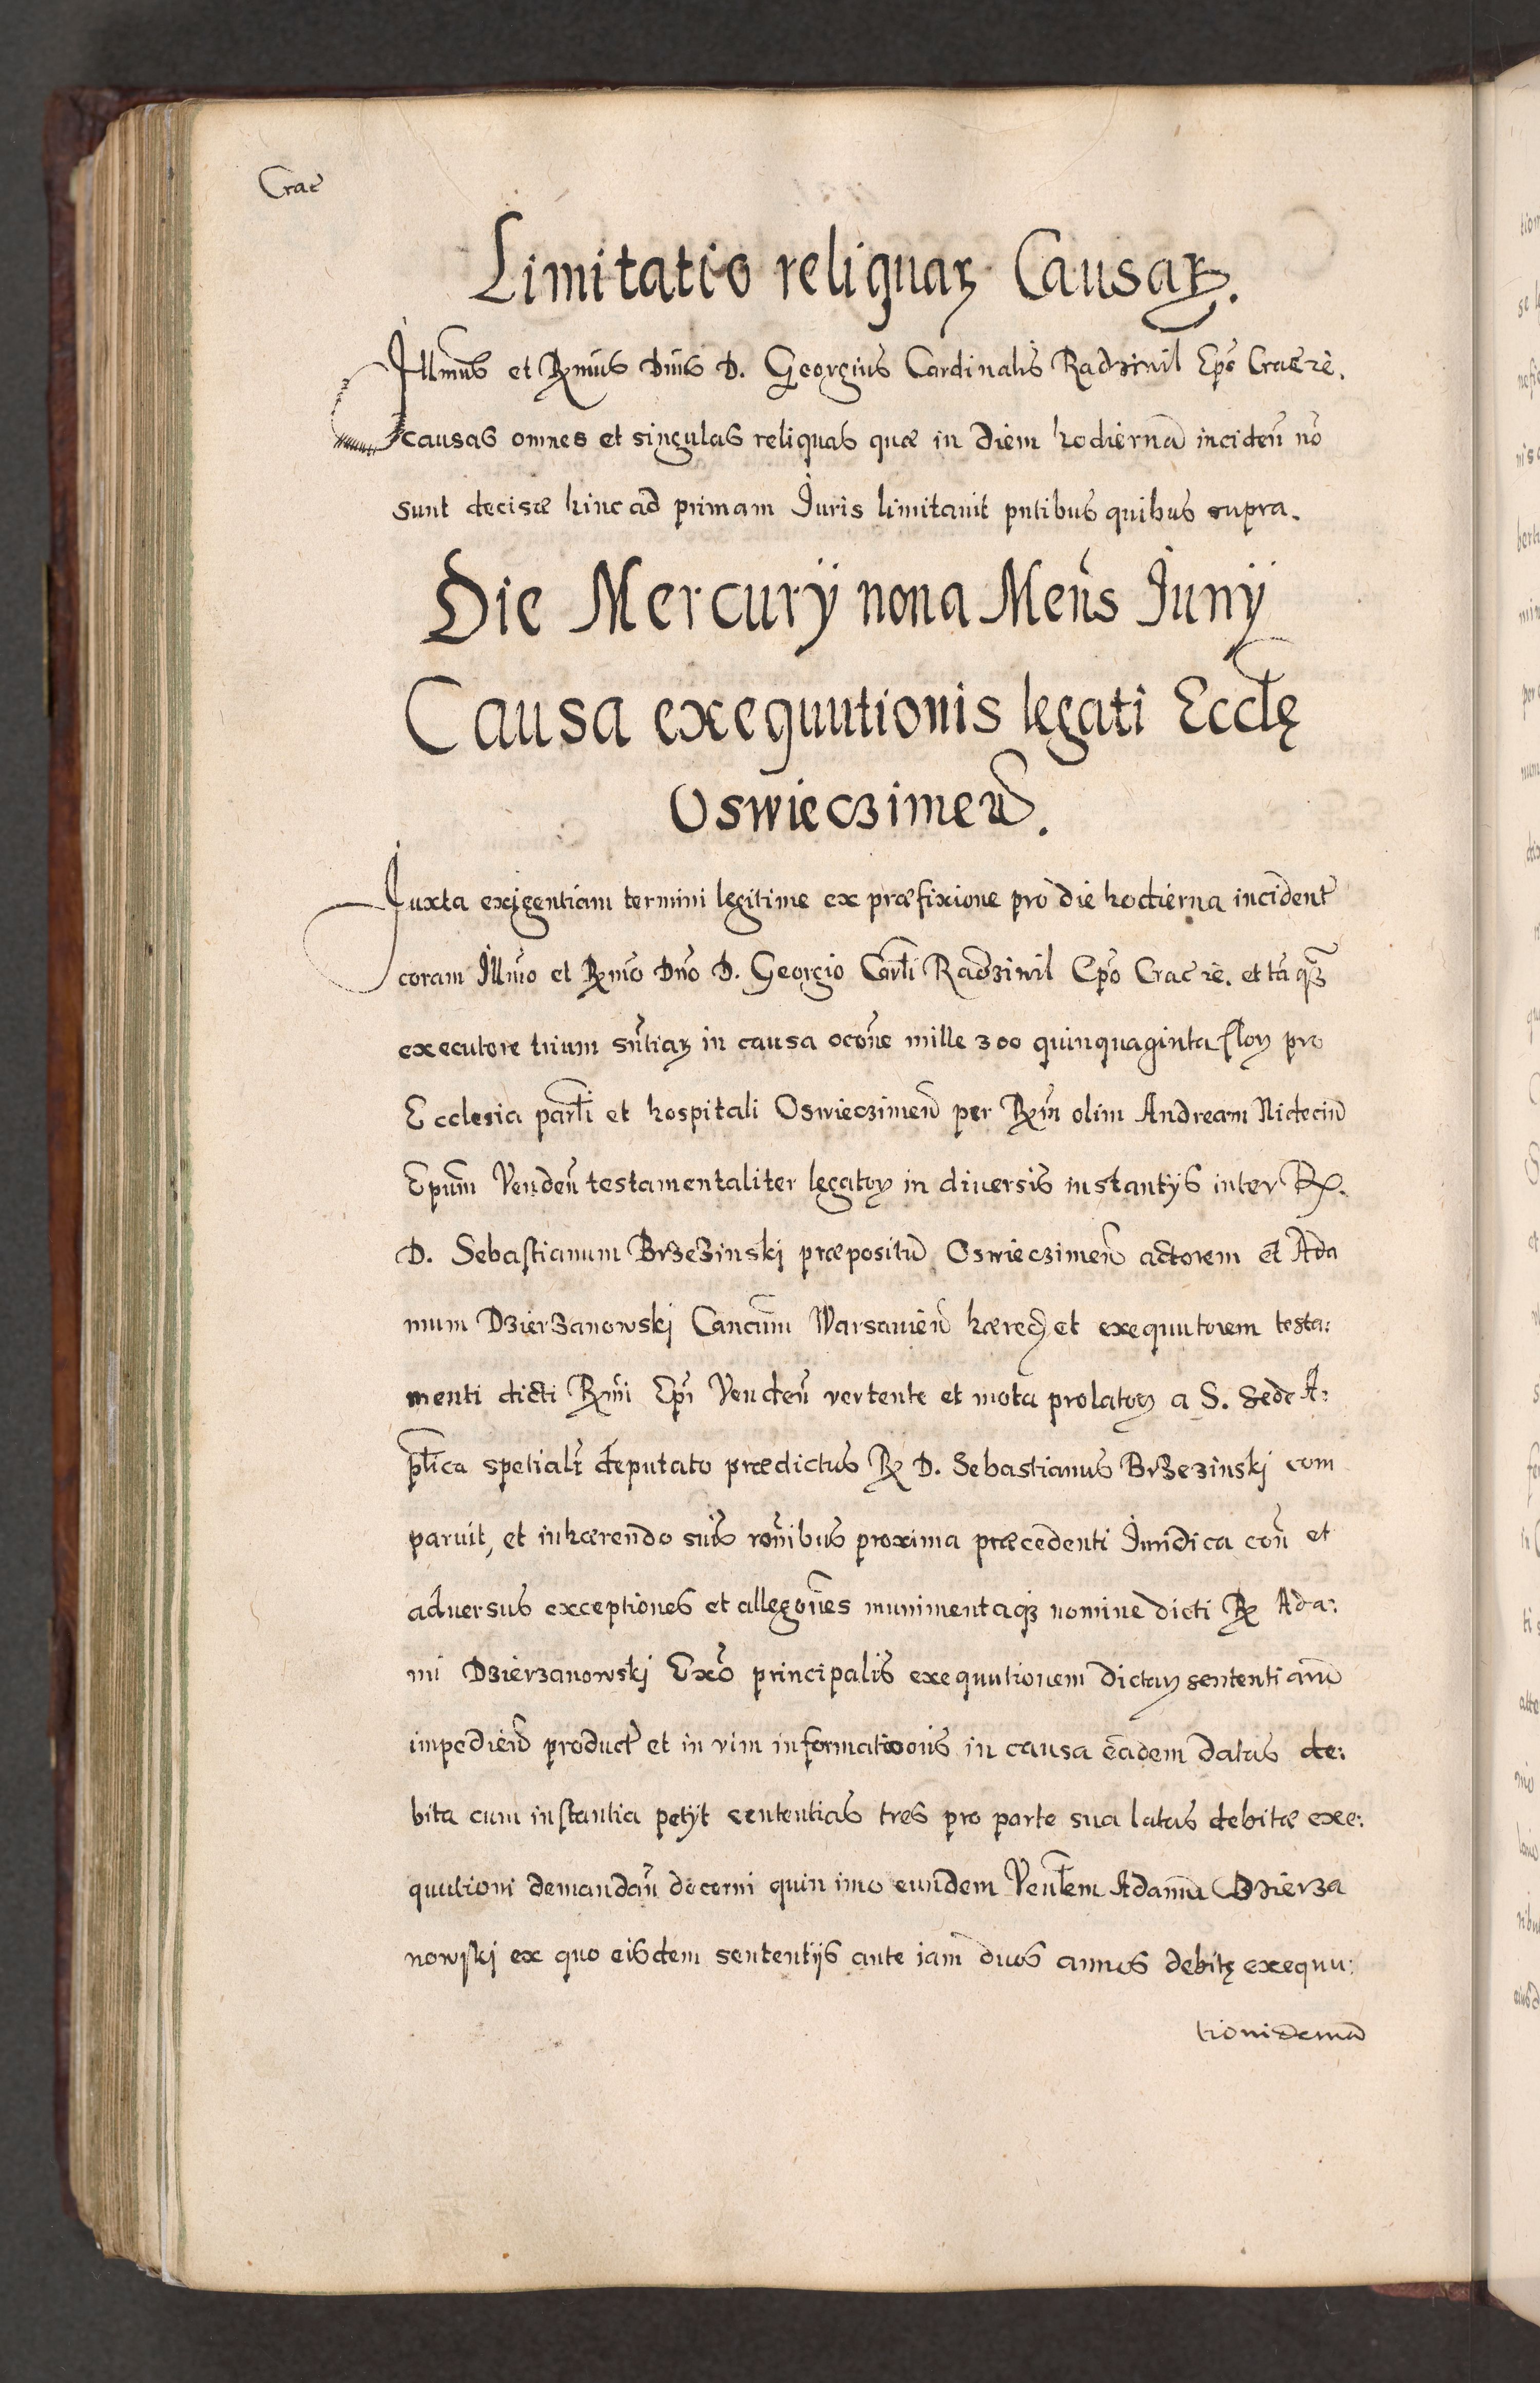 Crac̄
Limitatio reliquaꝝ Causaꝝ.
Illm̄us et Rm̄us Dn̄s D. Georgius Cardinalis Radziwil Ep̄s Crac̄ rē.
causas omnes et singulas reliquas quæ in diem hodiernā incideñ nō
sunt decisæ hinc ad primam Iuris limitauit pn̄tibus quibus supra.
Die Mercurÿ nona Meñs Iunÿ
Causa exequutionis legati Eccl̄ę
Oswieczimeñ.
Iuxta exigentiam termini legitime ex præfixione pro die hodierna incident̄
coram Illm̄o et Rm̄o Dn̄o D. Georgio Carl̄i Radziwil Ep̄o Crac̄ rē. et tāqꝫ
executore trium sn̄tiaꝝ in causa ocōne mille 300 quinquaginta floꝝ pro
Ecclesia parl̄i et hospitali Oswieczimeñ per Rm̄ olim Andream Nideciñ
Epum̄ Vendeñ testamentaliter legatoꝝ in diuersis instantÿs inter R.
D. Sebastianum Brzezinskj præpositū Oswieczimeñ actorem et Ada
mum Dzierzanowskj Cancum̄ Warsauieñ hæredē et exequutorem testa:
menti dicti Rm̄i Ep̄i Vendeñ vertente et mota prolatoꝝ a S. Sede A:
pl̄ica spetialr̄ deputato prædictus R D. Sebastianus Brzezinskj com
paruit, et inhærendo suis rōnibus proxima præcedenti Iuridica coñ et
aduersus exceptiones et allegōnes munimentaqꝫ nomine dicti R Ada:
mi Dzierzanowskj Exō principalis exequutionem dictaꝝ sententiarū
impedieñ product̄ et in vim informatioonis in causa eadem datas de:
bita cum instantia petÿt sententias tres pro parte sua latas debitæ exe:
quutioni demandañ decerni quin imo eundem Venl̄em Adamū Dzierza
nowskj ex quo eisdem sententÿs ante iam duos annos debitę exequu:
tioni demā